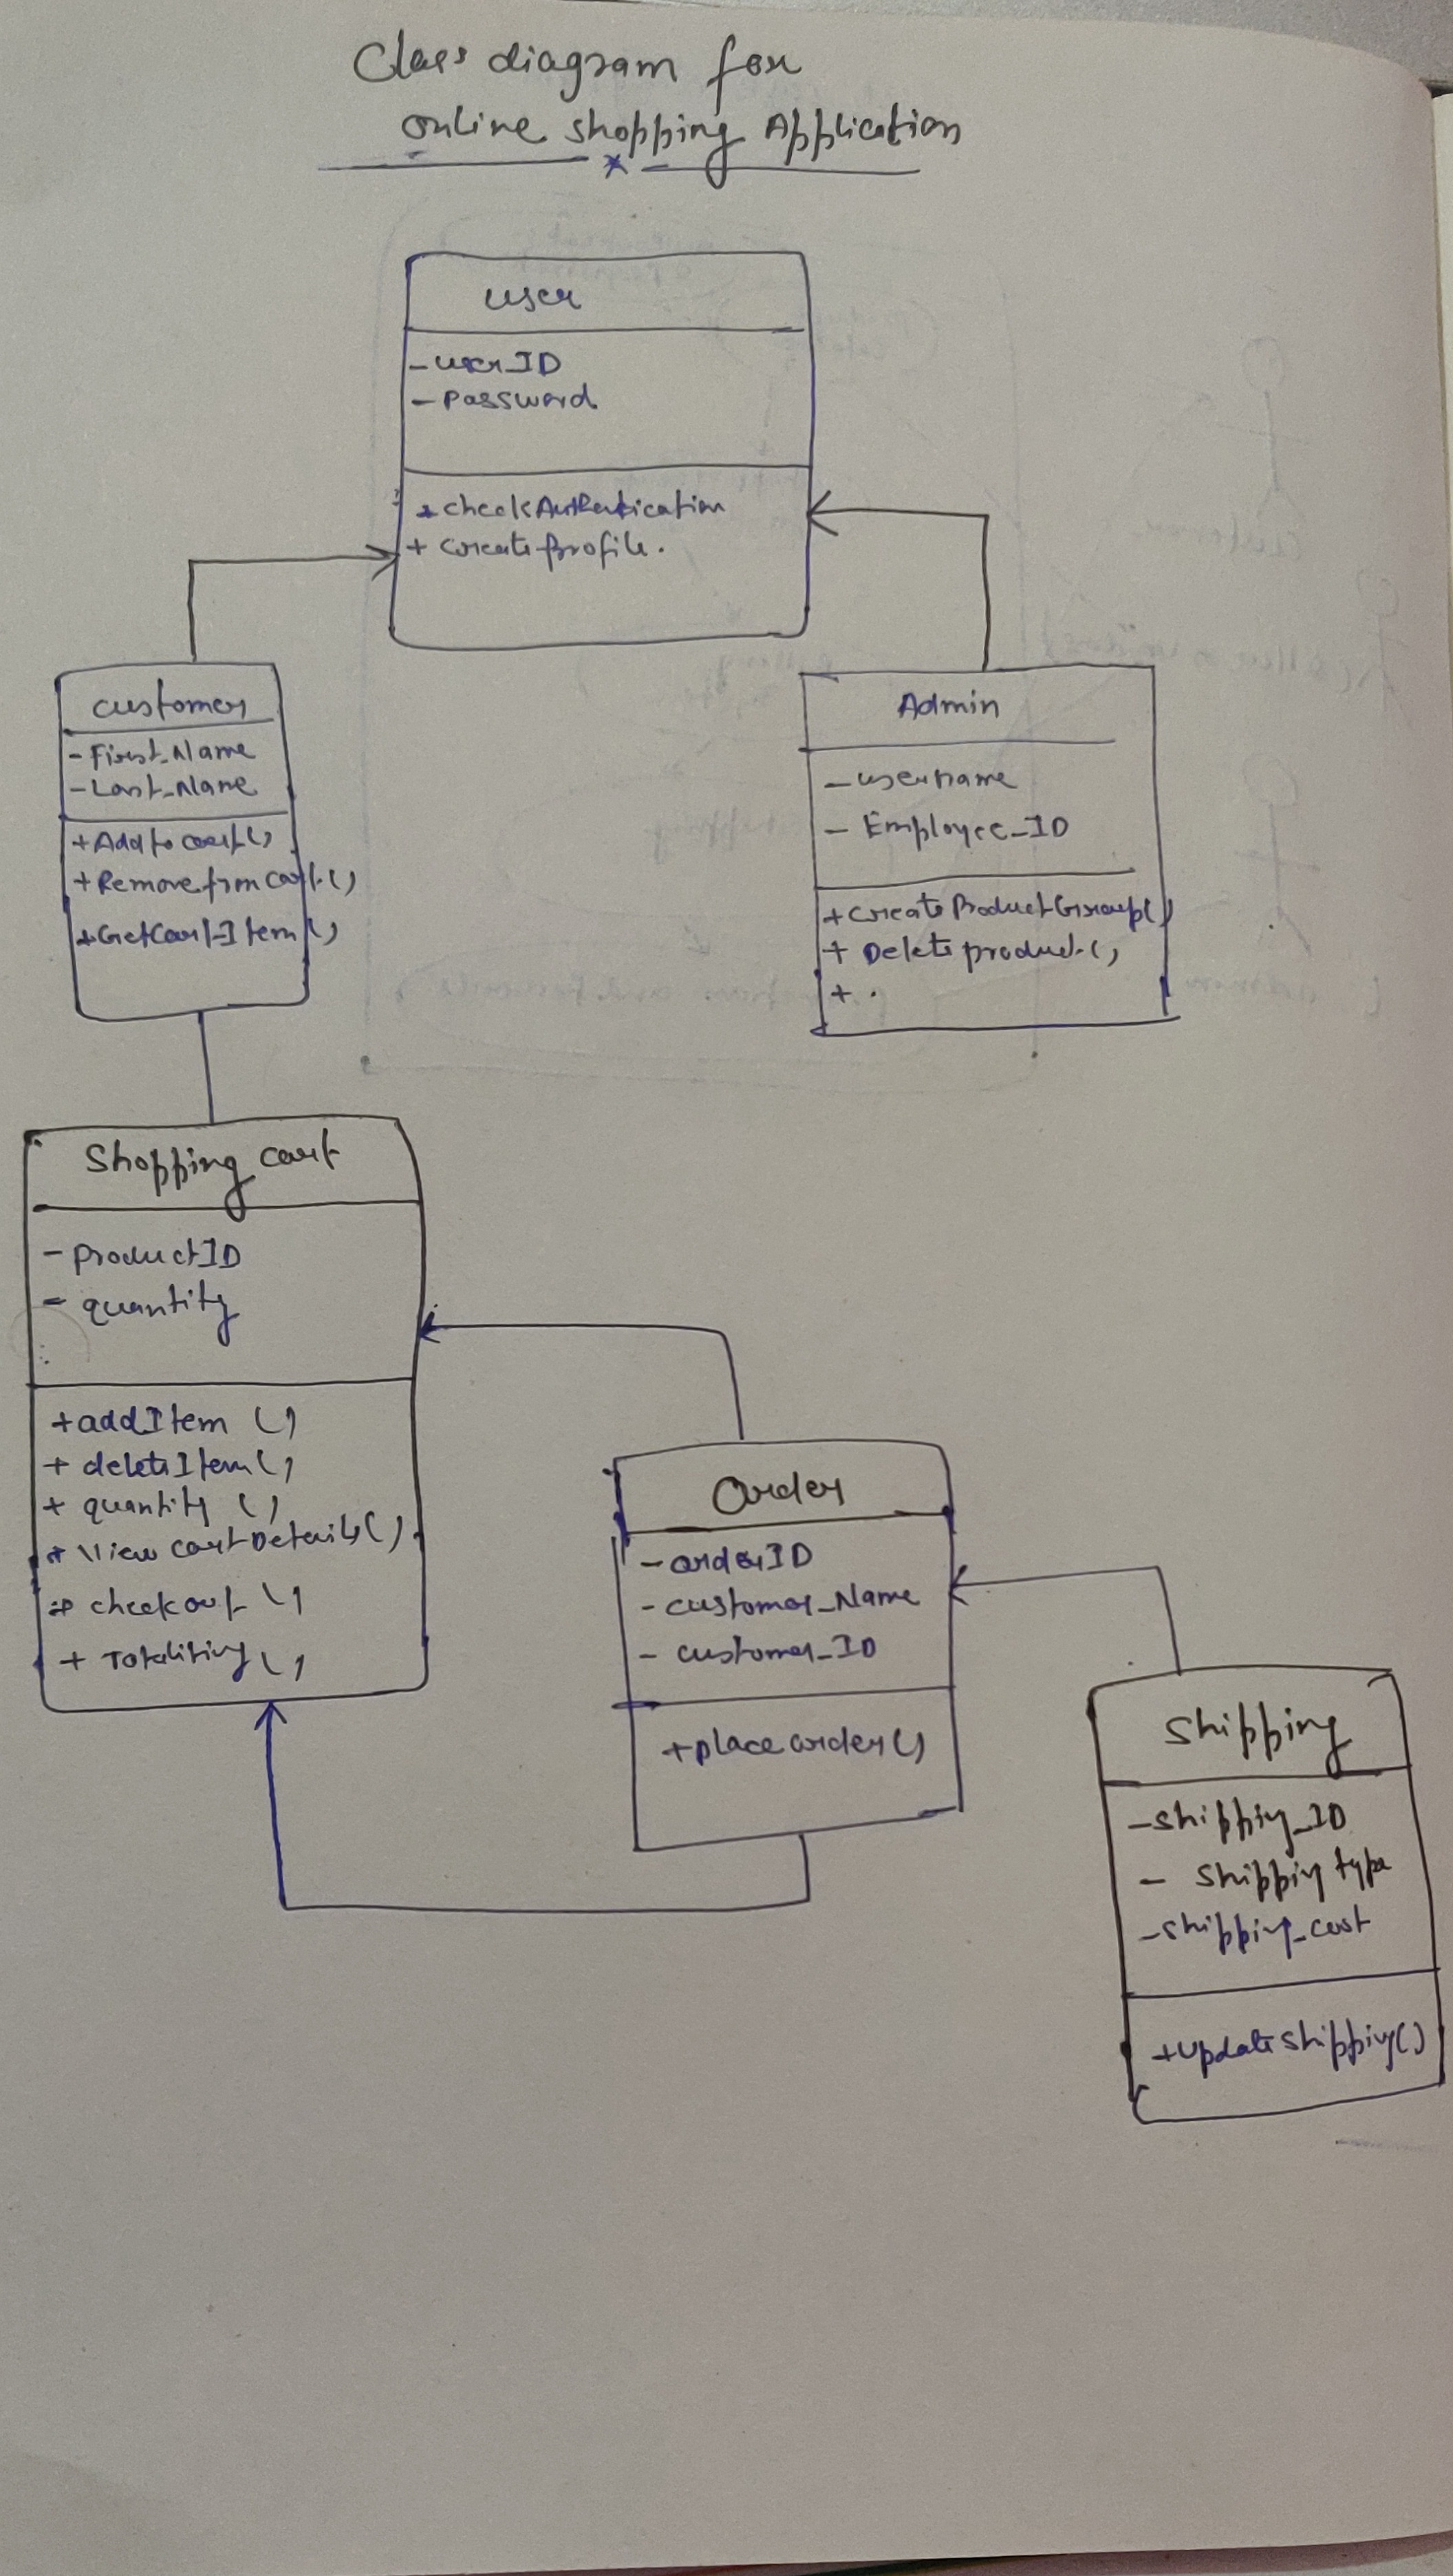 Class diagram for
online shopping Application
user
- user_ID
- Password
+ checkAuthentication
+ createProfile.
customer
- First_Name
- Last_Name
+ Add to cart()
+ Remove from cart()
+ GetCart-Item()
Admin
- username
- Employee_ID
+ create Product Group()
+ Delete product()
+ .
Shopping cart
- productID
- quantity
+ addItem ()
+ deleteItem()
+ quantity ()
+ View cart Details()
+ check out ()
+ ()
Order
- orderID
- customer_Name
- customer_ID
+ place order()
Shipping
- shipping_ID
- shipping type
- shipping_cost
+ Update shipping()